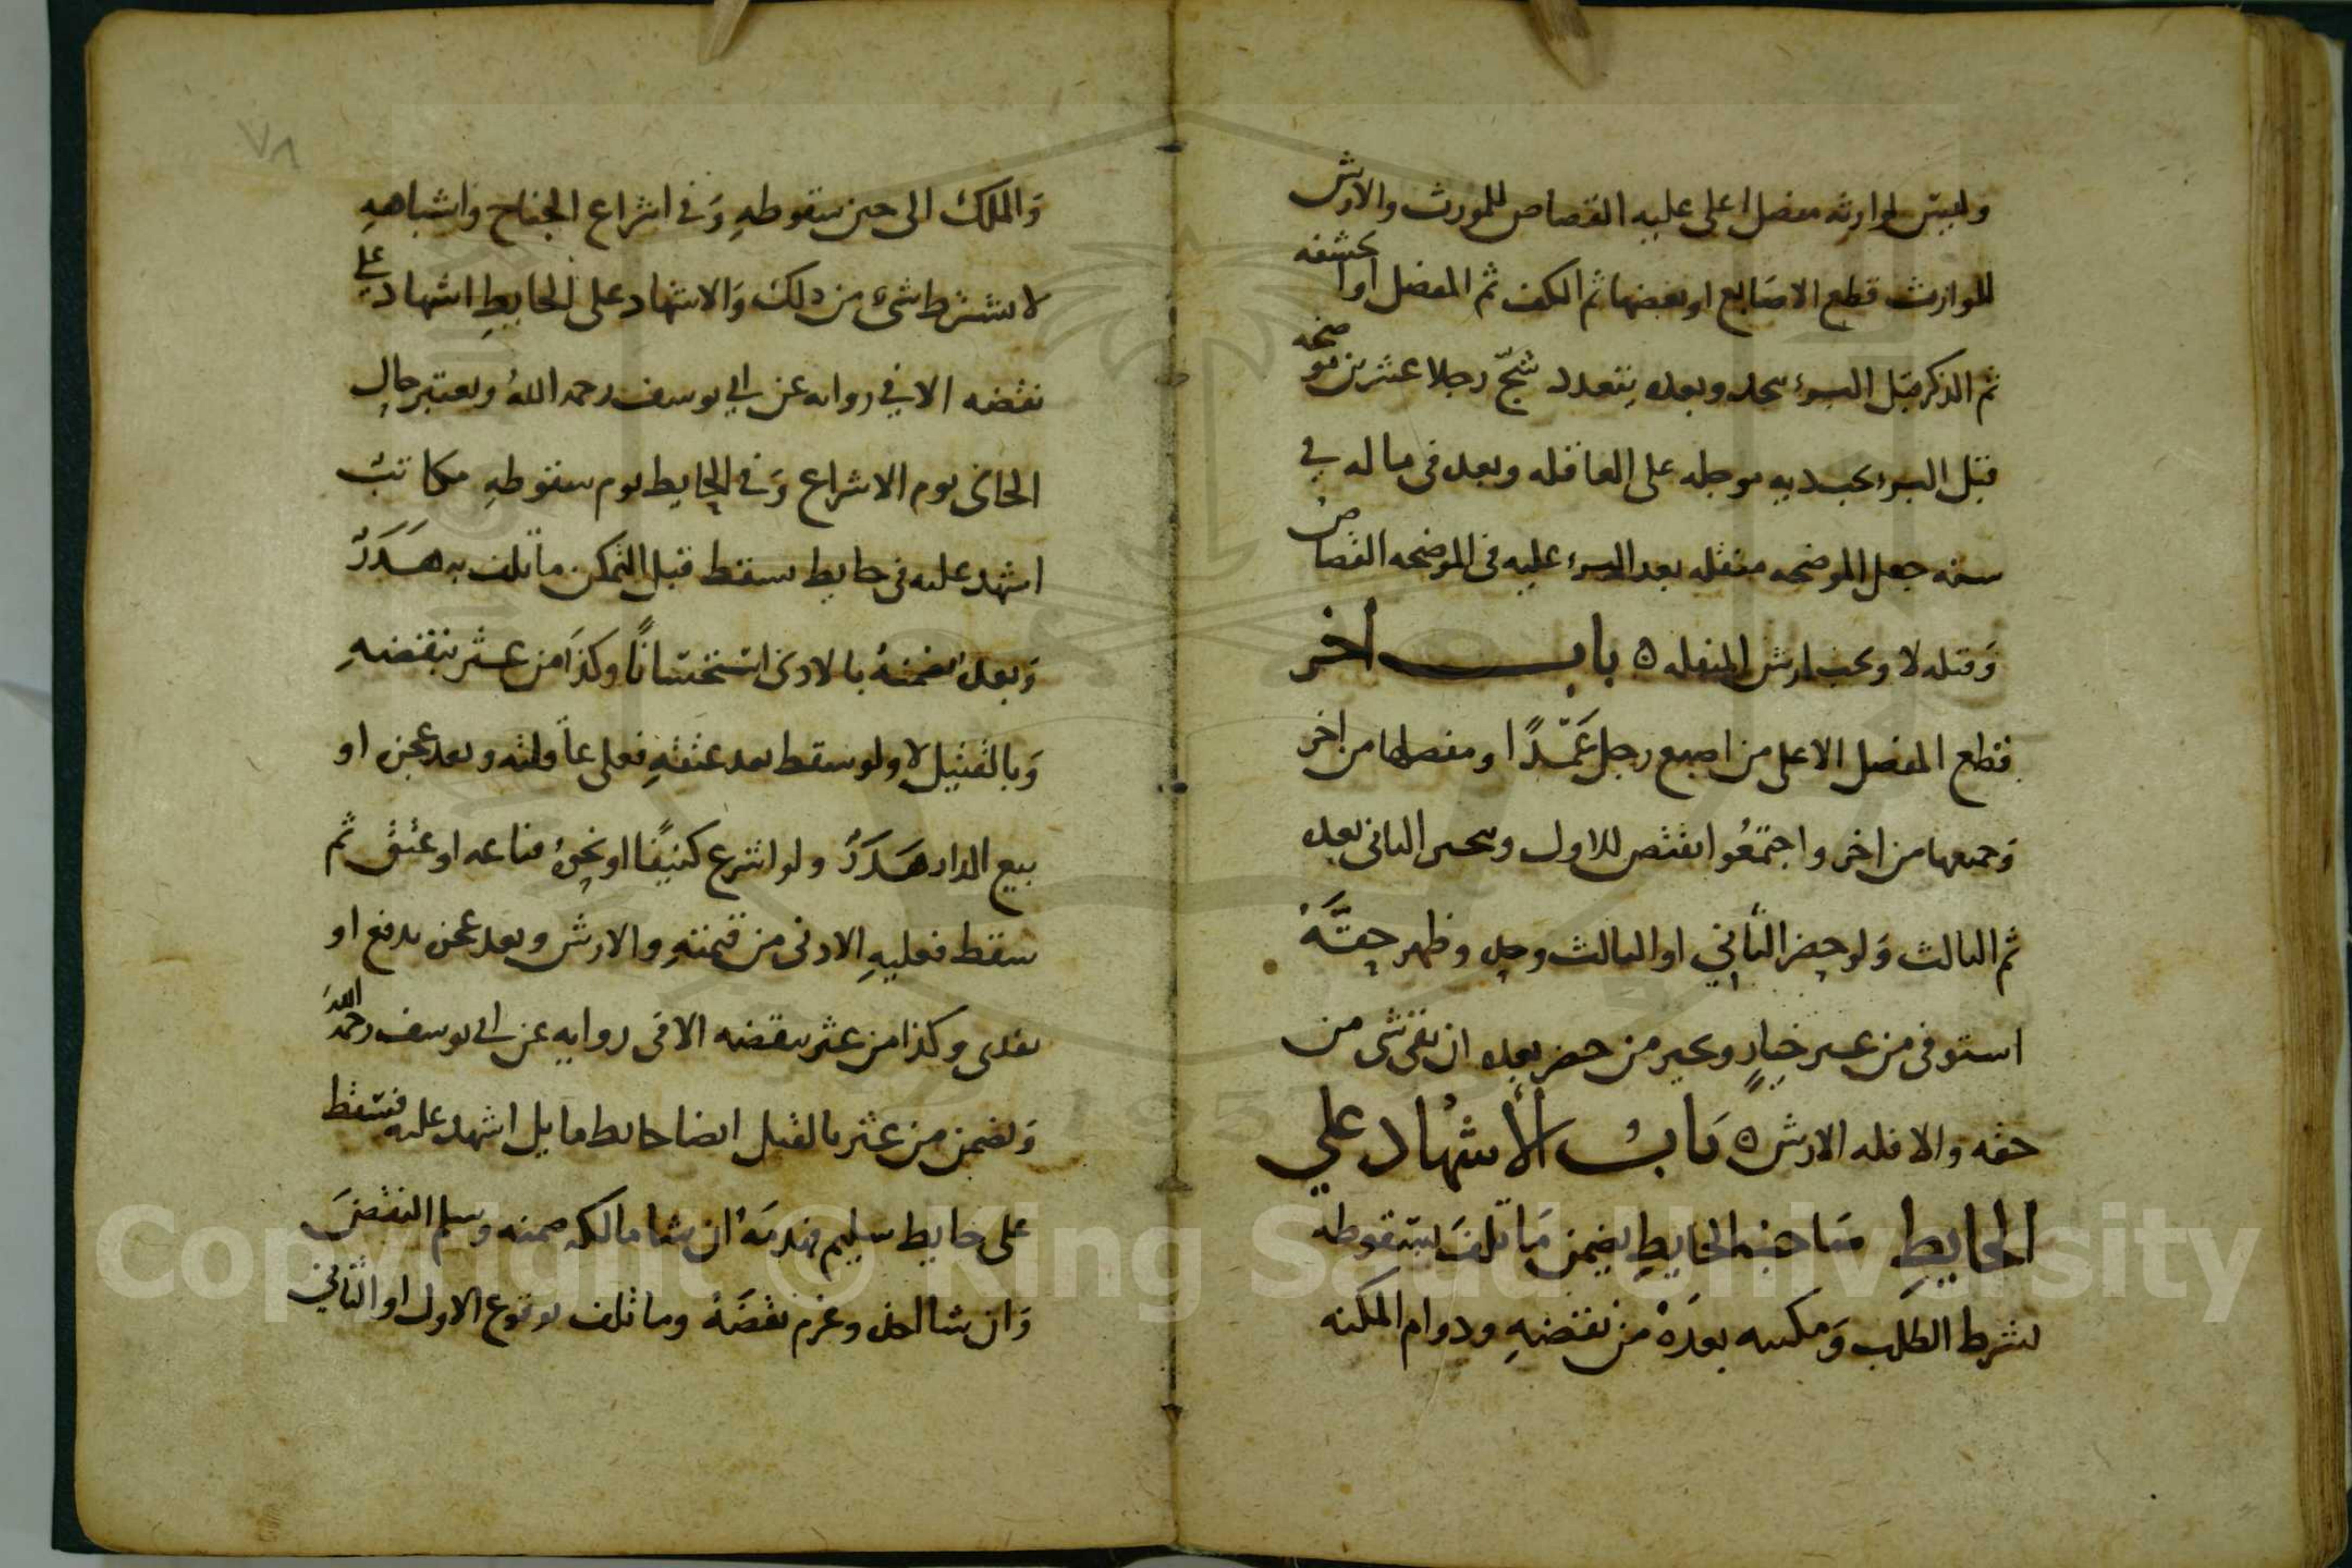 وليس لوارثه مفصل اعلى عليه القصاص للمورث والارش
للوارث قطع الاصابع او بعضها ثم الكف ثم المفصل او الحشفه
ثم الذكر قبل البرء يتحد وبعده يتعدد شجّ رجلا عشرين موضحه
قبل البرء تجب ديه موجله على العاقله وبعده فى ماله في
سنه جعل الموضحه منقله بعد البرء عليه فى الموضحه القصاص
وَقتله لا ويجب ارش المنقله ه باب اخر
قطع المفصل الاعلى من اصبع رجل عَمْدًا ومفصلها من اخر
وَجميعها من اخر واجتمعُوا يقتص للاول ويخير الثانى بعده
ثم الثالث وَلو حضر الثاني او الثالث وحده وظهر حقّهُ
استوفى من غير خيارٍ ويخير من حضر بعده ان بقى شى من
حقه والا فله الارش ه بَابُ الأشهاد علي
الحايطِ صَاحبُ الحايطِ يضمن مَا تلفَ بسقوطه
بشرط الطلب وَتمكنه بعدَهُ من نقضهِ ودوام المكنه
وَالملك الى حين سقوطهِ وَفى اشراع الجناح واشباههِ
لا يشترط شىء من ذلك وَالاشهاد على الحايطِ اشهاد على
نقضه الا في روايه عن ابي يوسف رحمه اللهُ ويعتبر حال
الجانى يوم الاشراع وَفى الحايط يوم سقوطهِ مكاتبٌ
اشهد عليه فى حايط سقط قبل التمكن ما تلف به هَدَرٌ
وَبعده يضمنهُ بالادنى استحسانًا وكذا من عثر بنقضهِ
وَبالقتيل لا ولو سقط بعد عتقهِ فعلى عاقلته وبعد عجز او
بيع الدار هَدَرٌ ولو اشرع كنيفًا او نحوهُ فباعه او عتق ثم
سقط فعليهِ الادنى من قيمتهِ والارش وبعد عجز يدفع او
يفدى وكذا من عثر بنقضه الا فى روايه عن ابى يوسف رحمه الله
وَيضمن من عثر بالقتيل ايضا حايط مايل اشهد عليه فسقط
على حايط سليم فهدمَهُ ان شا مالكه ضمنه وسلم النقضَ
وَان شا اخذه وغرم نقصَهُ وما تلف بوقوع الاول او الثاني
٧٨
Copyright © King Saud University
1957